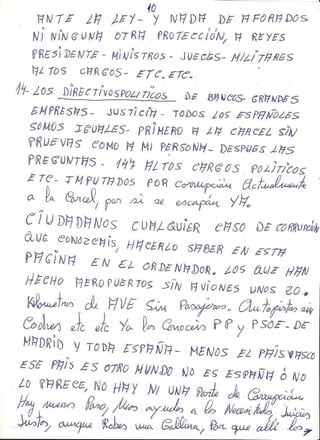 10
ANTE LA LEY - Y NADA DE AFORADOS
NI NINGUNA OTRA PROTECCIÓN, A REYES
PRESIDENTE - MINISTROS - JUECES - MILITARES
ALTOS CARGOS - ETC. ETC.
14- LOS DIRECTIVOS POLITICOS DE BANCOS - GRANDES
EMPRESAS - JUSTICIA - TODOS LOS ESPAÑOLES
SOMOS IGUALES - PRIMERO A LA CARCEL SIN
PRUEVAS COMO A MI PERSONA - DESPUES LAS
PREGUNTAS - 147 ALTOS CARGOS POLÍTICOS
ETC - IMPUTADOS POR corrupción Actualmente
a la Carcel, por si se escapán YA.
CIUDADANOS CUALQUIER CASO DE CORRUPCIÓN
QUE CONOZCAIS, HACERLO SABER EN ESTA
PAGINA EN EL ORDENADOR. LOS QUE HAN
HECHO AEROPUERTOS SIN AVIONES UNOS 20.
Kilometros de AVE Sin Pasajeros. Autopistas sin
Coches etc etc Ya los Conoceis PP y PSOE - DE
MADRID Y TODA ESPAÑA - MENOS EL PAÍS VASCO
ESE PAIS ES OTRO MUNDO NO ES ESPAÑA Ó NO
LO PARECE, NO HAY NI UNA Parte de Corrupción
Hay menos Paro, Mas ayudas a los Necesitados, Juicios
Justos, aunque Robes una Gallina, Por que alli los